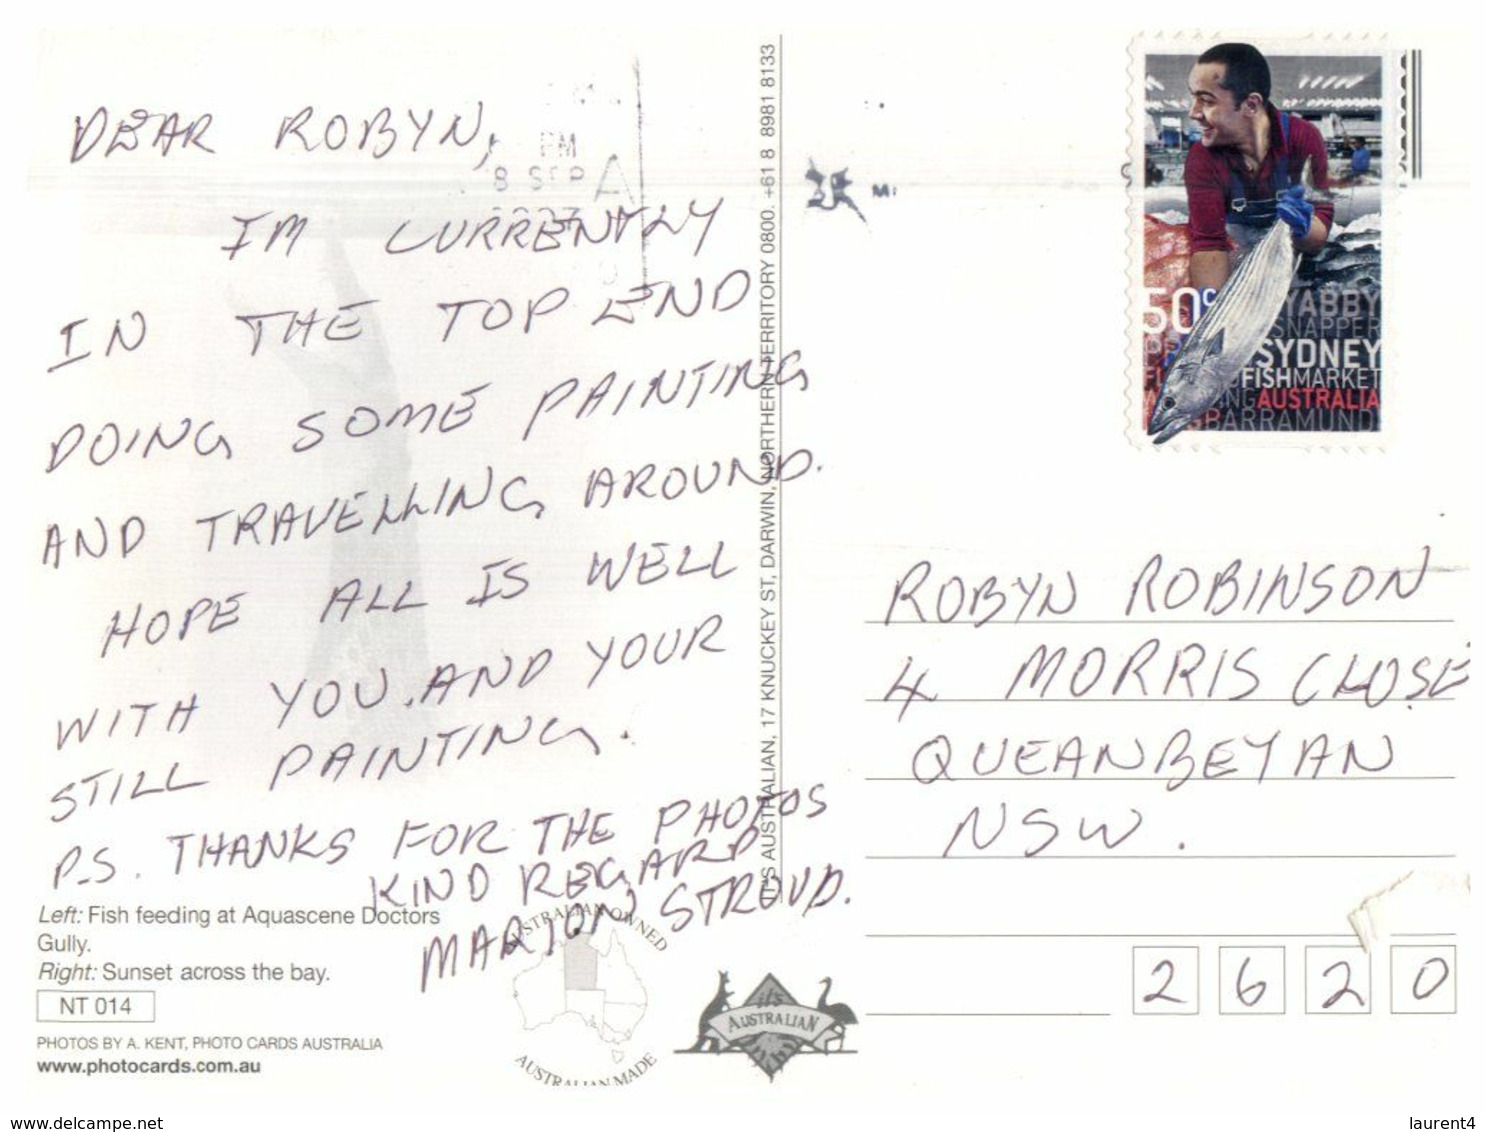 DEAR ROBYN,
IM CURRENTLY
IN THE TOP END
DOING SOME PAINTING
AND TRAVELLING AROUND.
HOPE ALL IS WELL
WITH YOU. AND YOUR
STILL PAINTING.
P.S. THANKS FOR THE PHOTOS
KIND REGARD
MARION STROUD.
PM
8 SEP
A
Left: Fish feeding at Aquascene Doctors
Gully.
Right: Sunset across the bay.
NT 014
PHOTOS BY A. KENT, PHOTO CARDS AUSTRALIA
www.photocards.com.au
AUSTRALIAN OWNED
AUSTRALIAN MADE
it's
AUSTRALIAN
IT'S AUSTRALIAN, 17 KNUCKEY ST, DARWIN, NORTHERN TERRITORY 0800. +61 8 8981 8133
50c
YABBY
SNAPPER
SYDNEY
FISHMARKET
AUSTRALIA
BARRAMUNDI
ROBYN ROBINSON
4 MORRIS CLOSE
QUEANBEYAN
NSW.
2620
www.delcampe.net
laurent4